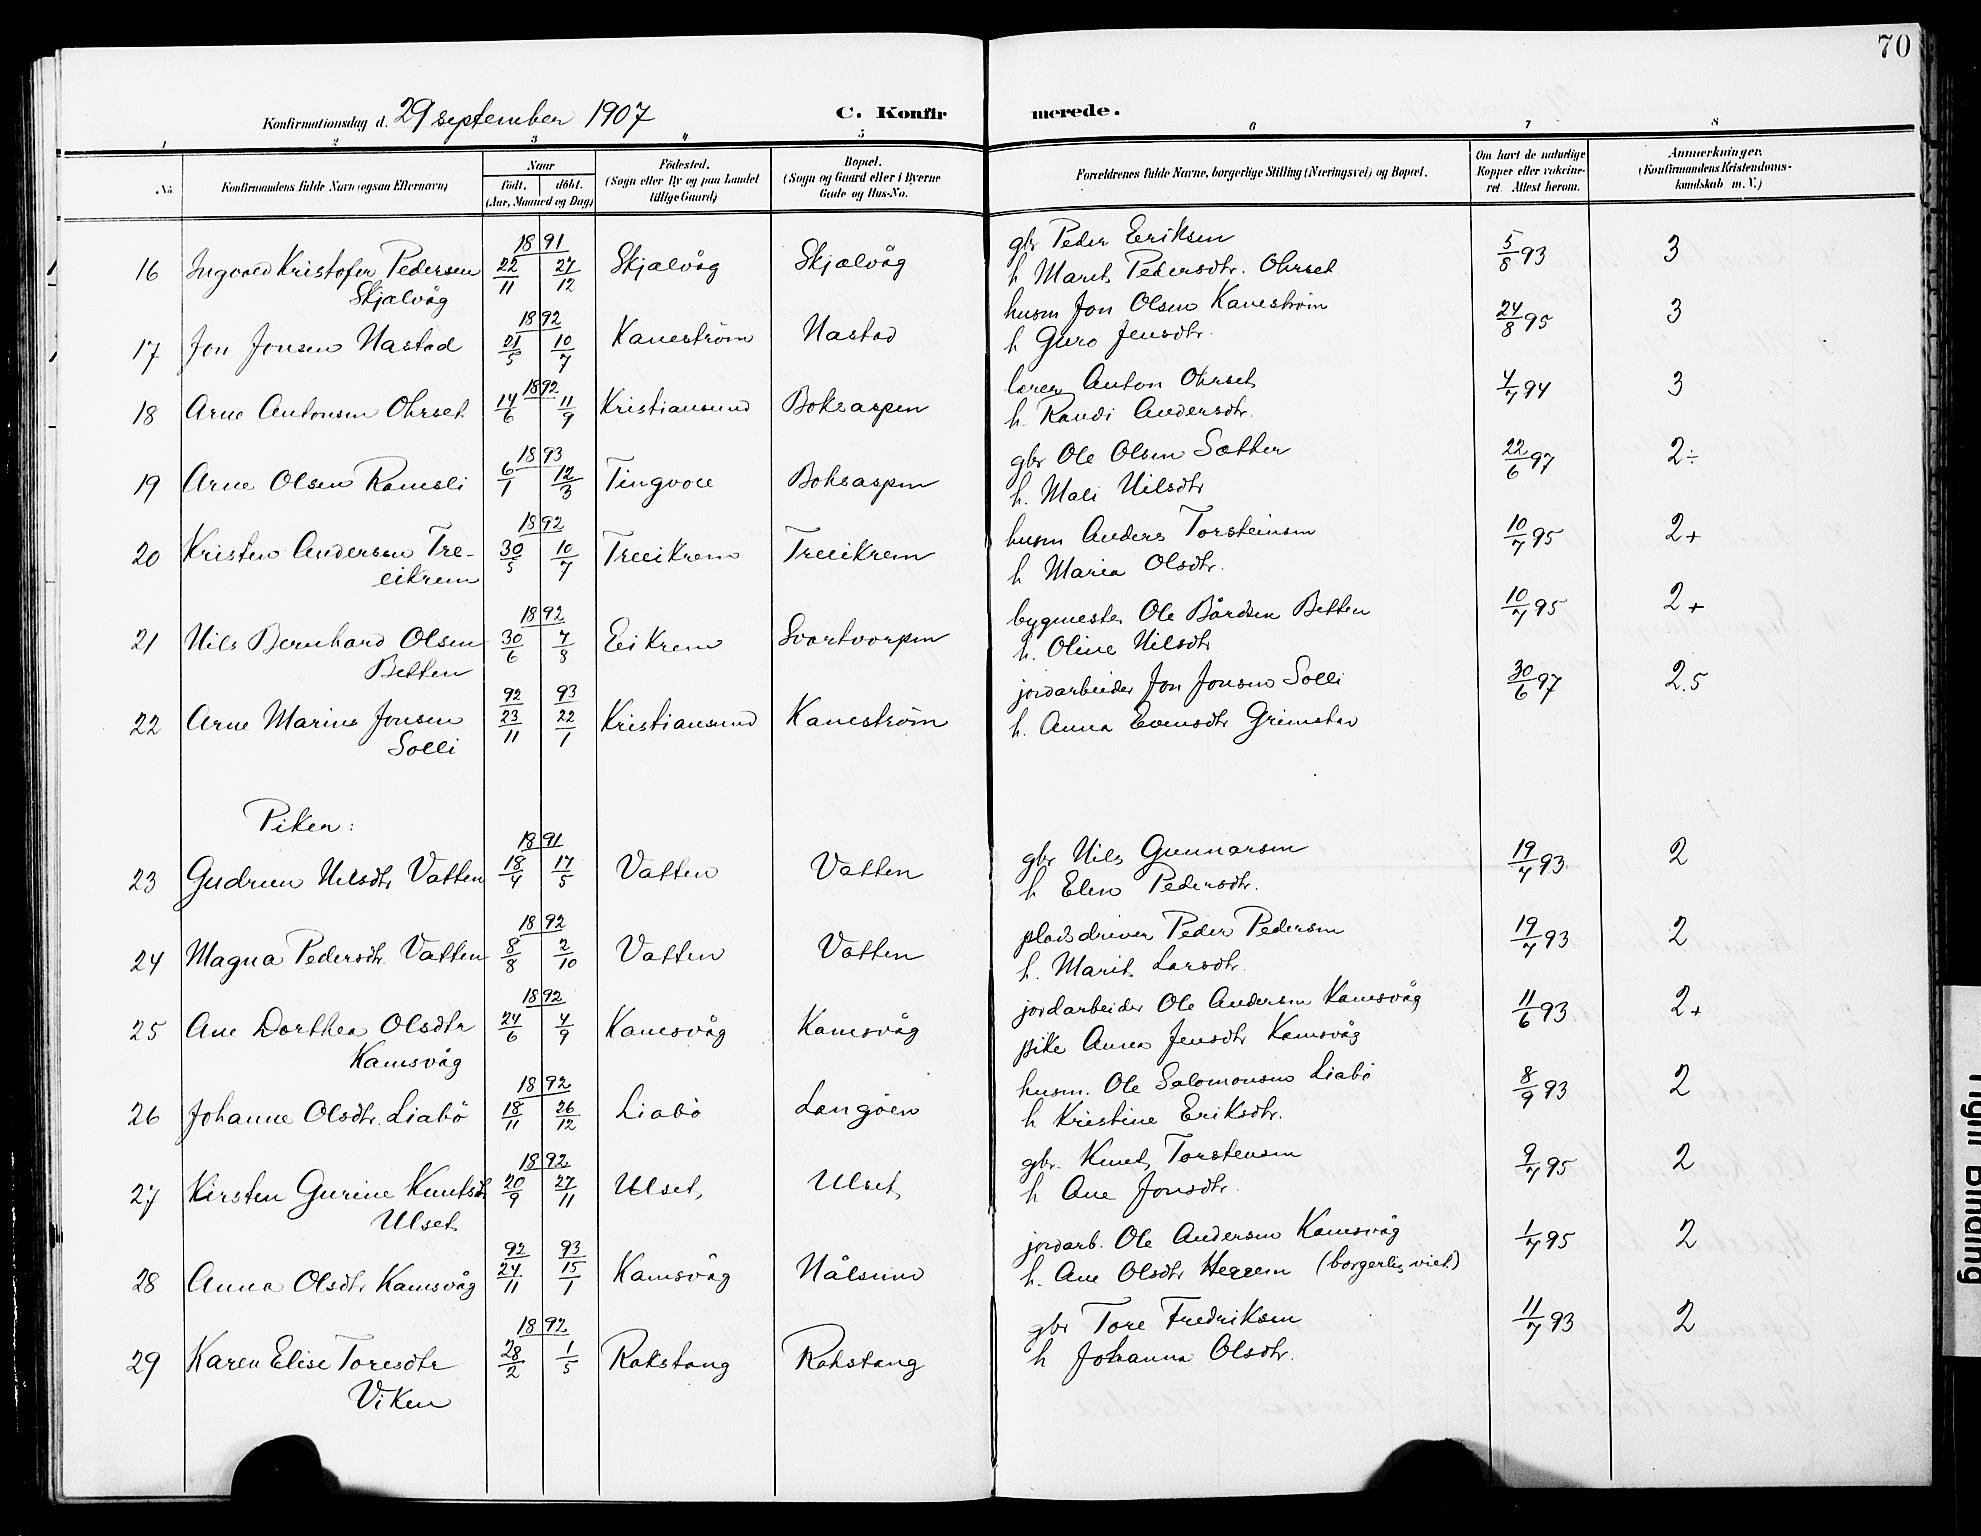 70
Konfirmationsdag d. 29 september 1907 C. Konfir merede.
1 2 3 4 5 6 7 8
No. Konfirmandens fulde Navn (ogsaa Efternavn) Naar født. døbt. (Aar, Maaned og Dag) Fødested. (Sogn eller By og paa Landet tillige Gaard) Bopæl. (Sogn og Gaard eller i Byerne Gade og Hus-No. Forældrenes fulde Navne, borgerlige Stilling (Næringsvei) og Bopæl. Om havt de naturlige Kopper eller vakcineret. Attest herom. Anmerkninger. (Konfirmandens Kristendomskundskab m. V.)
16 Ingvald Kristofer Pedersen Skjælvåg 1891 22/11 27/12 Skjælvåg Skjælvåg gbr Peder Eriksen 5/8 93 3
h Marit Pedersdtr. Ohrset
17 Jon Jonsen Nastad 1892 21/5 10/7 Kanestrøm Nastad husm Jon Olsen Kanestrøm 24/8 95 3
h Guro Jensdtr.
18 Arne Antonsen Ohrset 1892 14/6 11/9 Kristiansund Boksaspen lærer Anton Ohrset 4/7 94 3
h. Randi Andersdtr.
19 Arne Olsen Ramsli 1893 6/1 12/3 Tingvoll Boksaspen gbr Ole Olsen Sæther 22/6 97 2÷
h. Mali Nilsdtr
20 Kristen Andersen Tre-
eikrem 1892 30/5 10/7 Treeikrem Treeikrem husm Anders Torsteinsen 10/7 95 2+
h Maria Olsdtr.
21 Nils Bernhard Olsen Betten 1892 30/6 7/8 Eikrem Svartvarpen bygmester Ole Bårdsen Betten 10/7 95 2+
h. Oline Nilsdtr
22 Arne Marius Jonsen Solli 92 23/11 93 22/1 Kristiansund Kanestrøm jordarbeider Jon Jonsen Solli 30/6 97 2.5
h. Anna Evensdtr Grimstad
Piker:
23 Gudrun Nilsdtr Vatten 1891 18/4 17/5 Vatten Vatten gbr Nils Gunnarsen 19/7 93 2
h Elen Pedersdtr.
24 Magna Pedersdtr. Vatten 1892 8/8 2/10 Vatten Vatten pladsdriver Peder Pedersen 19/7 93 2
h. Marit Larsdtr.
25 Ane Dorthea Olsdtr Kamsvåg 1892 24/6 4/9 Kamsvåg Kamsvåg jordarbeider Ole Andersen Kamsvåg 11/6 93 2+
pike Anna Jensdtr Kamsvåg
26 Johanne Olsdtr. Liabø 1892 18/11 26/12 Liabø Langøen husm. Ole Salomonsen Liabø 8/9 93 2
h Kristine Eriksdtr.
27 Kirsten Gurine Knutsdt Ulset 1892 20/9 27/11 Ulset Ulset gbr. Knut Torstensen 9/7 95 2
h Ane Jonsdtr.
28 Anna Olsdtr Kamsvåg 92 24/11 93 15/1 Kamsvåg Nålsund jordarb. Ole Andersen Kamsvåg 1/7 95 2
h. Ane Olsdtr Heggem (borgerlig viet)
29 Karen Elise Toresdtr Viken 1892 28/2 1/5 Rokstang Rokstang gbr Tore Fredriksen 11/7 93 2
h Johanna Olsdtr.
Tight Binding